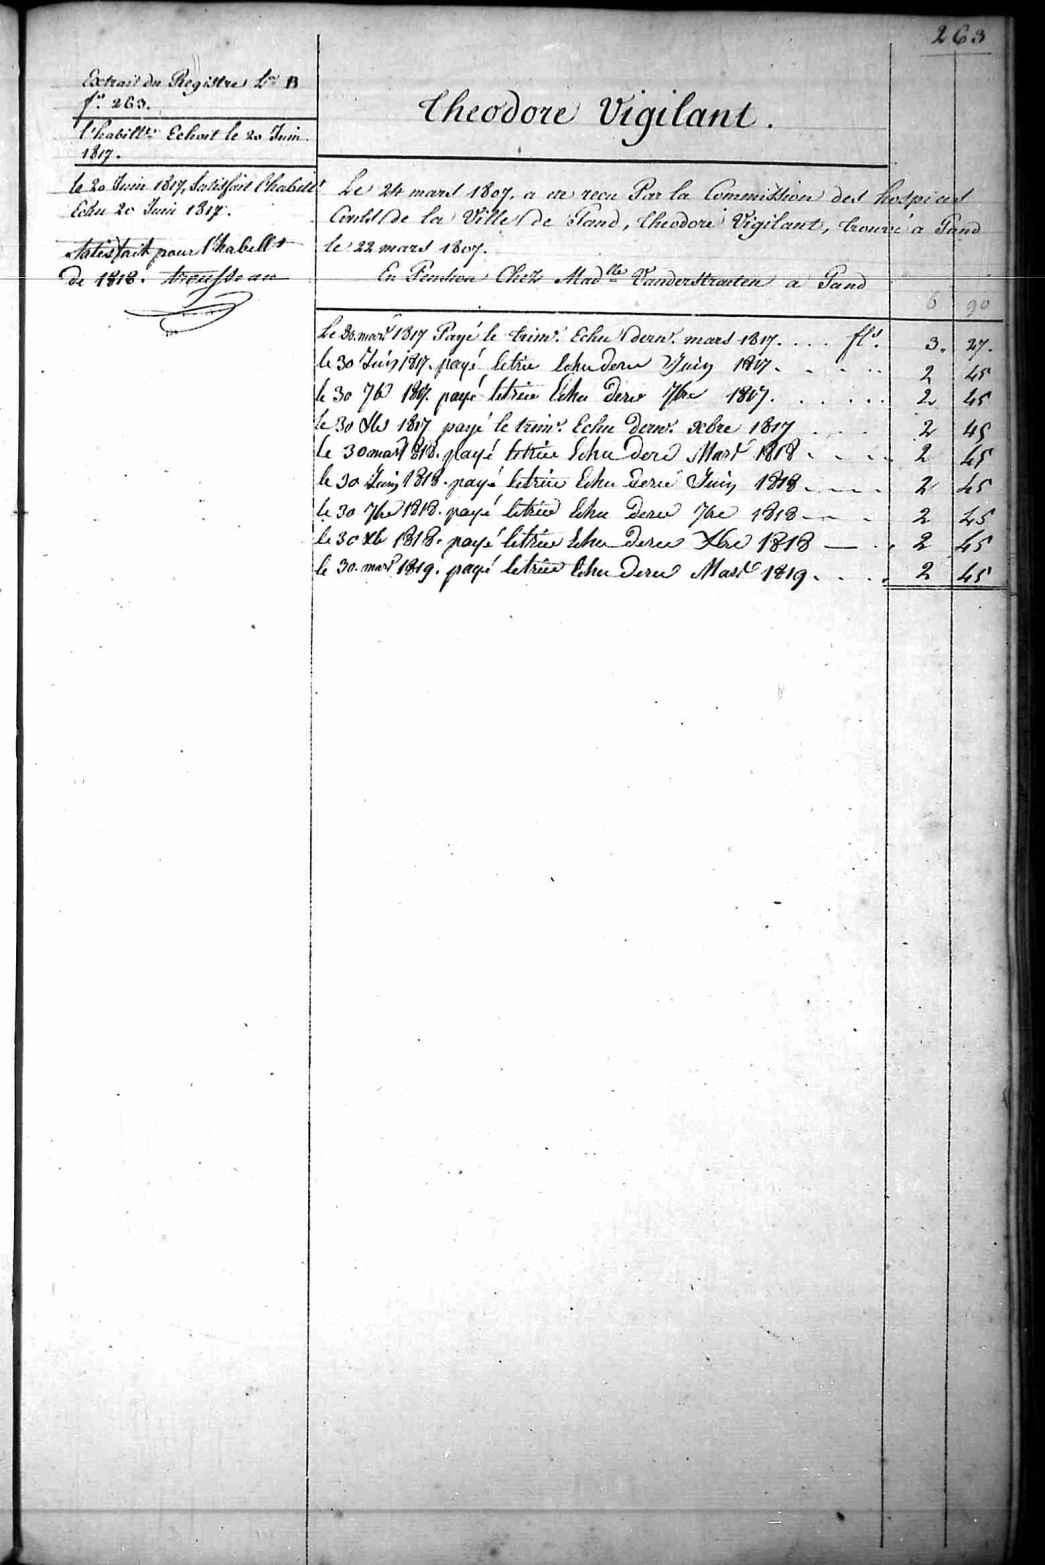 263
Extrait du Registre L.re B
f.o 263.
l'habill.t Echoit le 20 Juin
1817.
le 20 Juin 1817, Satisfait l'habill.t
Echu 20 Juin 1817.
Satisfait pour l'habill.t
de 1818.
Theodore Vigilant.
Le 24 mars 1807. a été recu Par la Commission des hospices
Civils de la Ville de Gand, Theodore Vigilant, trouvé a Gand
le 22 mars 1807.
En Pension Chez Mad.lle Vanderstraeten a Gand
6 90
Le 30. mars 1817 Payé le trim. Echu dern. mars 1817. . . . fl.s 3. 27.
le 30 Juin 1817. payé letrie Echu dere Juin 1817. . . . . . 2 45
le 30 7b 1817. payé letrie Echu dere 7bre 1817. . . . . . 2 45
le 30 Xbs 1817 payé le trim. Echu dern. xbre 1817 . . . 2 45
le 30 mars 1818. payé letrie Echu dere Mars 1818 . . . . 2 45
le 30 Juin 1818. payé letrie Echu dere Juin 1818 . . . . 2 45
le 30 7bre 1818. payé letrie Echu dere 7bre 1818 - - . 2 45
le 30 Xb 1818. payé letrie Echu dere Xbre 1818 — . . 2 45
le 30. mars 1819. payé letrie Echu dere Mars 1819. . . . 2 45